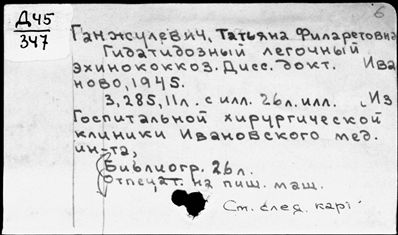 Д45
347
6
Ганжулевич, Татьяна Филаретовна
Гидатидозный легочный
эхинококкоз. Дисс. докт. Ива
ново, 1945.
3, 285, 11л. с илл. 26л. илл. Из
Госпитальной хирургической
клиники Ивановского мед.
ин-та,
Библиогр. 26л.
Отпечат. на пиш. маш.
См. след. карт